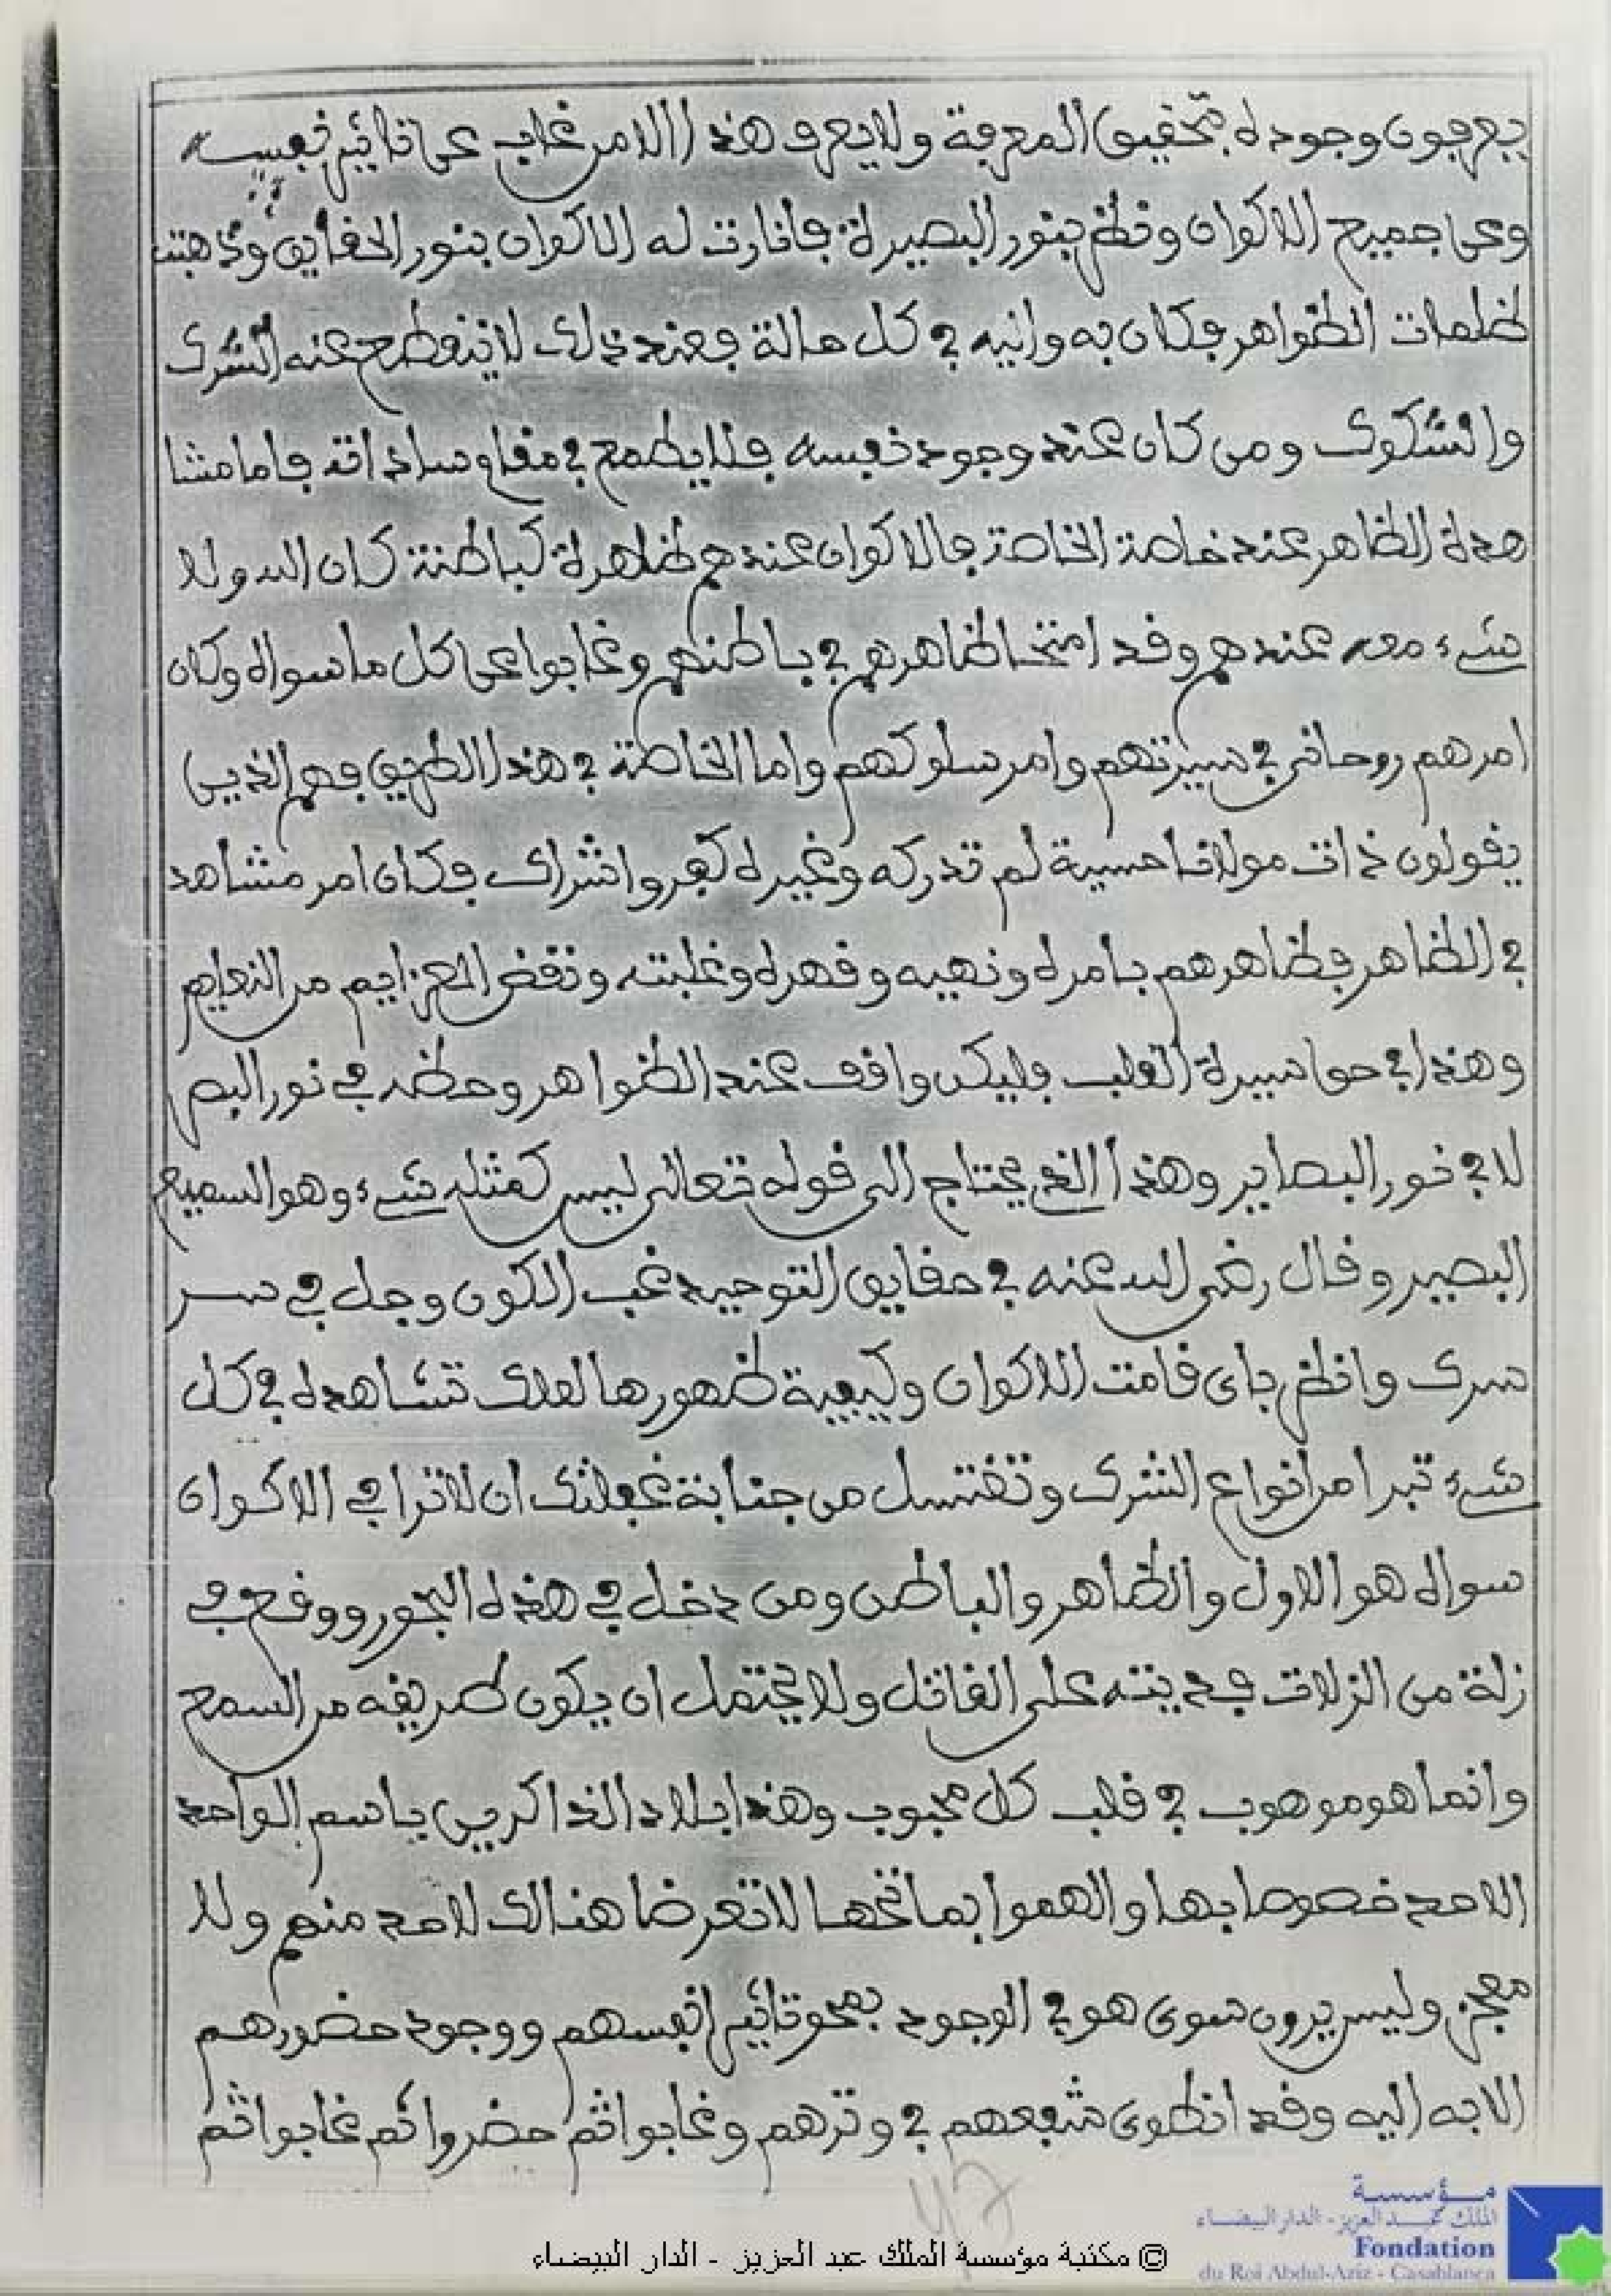 يعرفون وجوده بتحقيق المعرفة ولا يعرف هذا الامر غاب عن تاثير نفسه
وعن جميع الاكوان ونظر بنور البصيرة فانارت له الاكوان بنور الحقايق وذهبت
ظلمات الظواهر فكان به واليه في كل حالة فعند ذلك لا ينقطع عنه الشرك
والشكوك ومن كان عند وجود نفسه فلا يطمع في مقام ساداته فاما مشا
هدة الظاهر عند خاصة الخاصة فالاكوان عندهم ظاهرة كباطنة كان الله ولا
شيء معه عندهم وقد امتحا ظاهرهم في باطنهم وغابوا عن كل ما سواه وكان
امرهم روحاني في سيرتهم وامر سلوكهم واما الخاصة في هذا الطريق فهم الذين
يقولون ذات مولانا حسية لم تدركه وغيره كفر واشراك فكان امر مشاهد
في الظاهر فظاهرهم بامره ونهيه وقهره وغلبته ونقض العزايم من
وهذا في حق اسيرة القلب فليكن واقف عند الظواهر وحظه في نور البصر
لا في نور البصاير وهذا الذي يحتاج الى قوله تعالى ليس كمثله شيء وهو السميع
البصير وقال رضي الله عنه في حقايق التوحيد غب الكون وجل في سر
سرك وانظر باي قامت الاكوان وكيفية ظهورها لعلك تشاهده في كل
شيء تبرا من انواع الشرك وتغتسل من جنابة غفلتك ان لا ترا في الاكوان
سواه هو الاول والظاهر والباطن ومن دخل في هذه البحور ووقع في
زلة من الزلات فديته على القاتل ولا يحتمل ان يكون طريقه من السمع
وانما هو موهوب في قلب كل محبوب وهذا بلاد الذاكرين باسم الواحد
الاحد خصوصا بها والهموا بما تحتها لا تعرضا هنالك لاحد منهم ولا
معجز وليس يرون سوى هو في الوجود بمحو تاثير انفسهم ووجود حضورهم
الا به اليه وقد انطوى شفعهم في وترهم وغابوا ثم حضروا ثم غابوا ثم
47
© مكتبة مؤسسة الملك عبد العزيز - الدار البيضاء
مؤسسة
الملك عبد العزيز - الدار البيضاء
Fondation
du Roi Abdul-Aziz - Casablanca